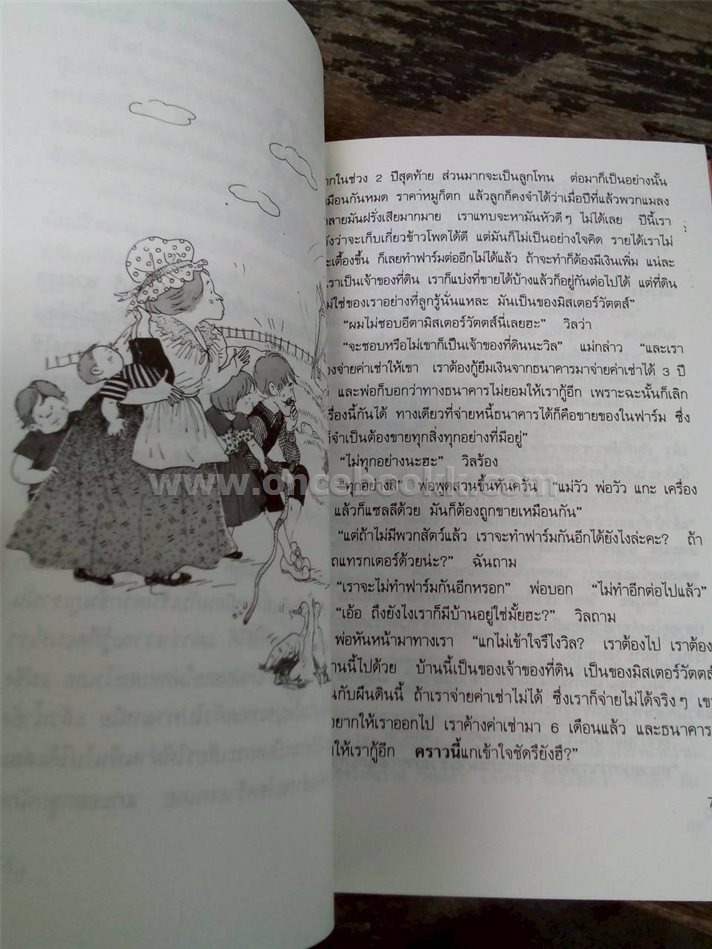 ากในช่วง 2 ปีสุดท้าย ส่วนมากจะเป็นลูกโทน ต่อมาก็เป็นอย่างนั้น
หมือนกันหมด ราคาหมูก็ตก แล้วลูกก็คงจำได้ว่าเมื่อปีที่แล้วพวกแมลง
ำลายมันฝรั่งเสียมากมาย เราแทบจะหามันหัวดีๆ ไม่ได้เลย ปีนี้เรา
ังว่าจะเก็บเกี่ยวข้าวโพดได้ดี แต่มันก็ไม่เป็นอย่างใจคิด รายได้เราไม่
ะเตื้องขึ้น ก็เลยทำฟาร์มต่ออีกไม่ได้แล้ว ถ้าจะทำก็ต้องมีเงินเพิ่ม แน่ละ
เราเป็นเจ้าของที่ดิน เราก็แบ่งที่ขายได้บ้างแล้วก็อยู่กันต่อไปได้ แต่ที่ดิน
ม่ใช่ของเราอย่างที่ลูกรู้นั่นแหละ มันเป็นของมิสเตอร์วัตตส์"
"ผมไม่ชอบอีตามิสเตอร์วัตตส์นี่เลยฮะ" วิลว่า
"จะชอบหรือไม่เขาก็เป็นเจ้าของที่ดินนะวิล" แม่กล่าว "และเรา
้องจ่ายค่าเช่าให้เขา เราต้องกู้ยืมเงินจากธนาคารมาจ่ายค่าเช่าได้ 3 ปี
และพ่อก็บอกว่าทางธนาคารไม่ยอมให้เรากู้อีก เพราะฉะนั้นก็เลิก
รื่องนี้กันได้ ทางเดียวที่จ่ายหนี้ธนาคารได้ก็คือขายของในฟาร์ม ซึ่ง
็จำเป็นต้องขายทุกสิ่งทุกอย่างที่มีอยู่"
"ไม่ทุกอย่างนะฮะ" วิลร้อง
"ทุกอย่างสิ" พ่อพูดสวนขึ้นทันควัน "แม่วัว พ่อวัว แกะ เครื่อง
แล้วก็แซลลีด้วย มันก็ต้องถูกขายเหมือนกัน"
"แต่ถ้าไม่มีพวกสัตว์แล้ว เราจะทำฟาร์มกันอีกได้ยังไงล่ะคะ? ถ้า
ถแทรกเตอร์ด้วยน่ะ?" ฉันถาม
"เราจะไม่ทำฟาร์มกันอีกหรอก" พ่อบอก "ไม่ทำอีกต่อไปแล้ว"
"เอ้อ ถึงยังไงเราก็มีบ้านอยู่ใช่มั้ยฮะ?" วิลถาม
พ่อหันหน้ามาทางเรา "แกไม่เข้าใจรึไงวิล? เราต้องไป เราต้อง
้านนี้ไปด้วย บ้านนี้เป็นของเจ้าของที่ดิน เป็นของมิสเตอร์วัตตส์
นกับผืนดินนี้ ถ้าเราจ่ายค่าเช่าไม่ได้ ซึ่งเราก็จ่ายไม่ได้จริงๆ เขา
อยากให้เราออกไป เราค้างค่าเช่ามา 6 เดือนแล้ว และธนาคาร
ให้เรากู้อีก คราวนี้แกเข้าใจชัดรึยังฮึ?"
7